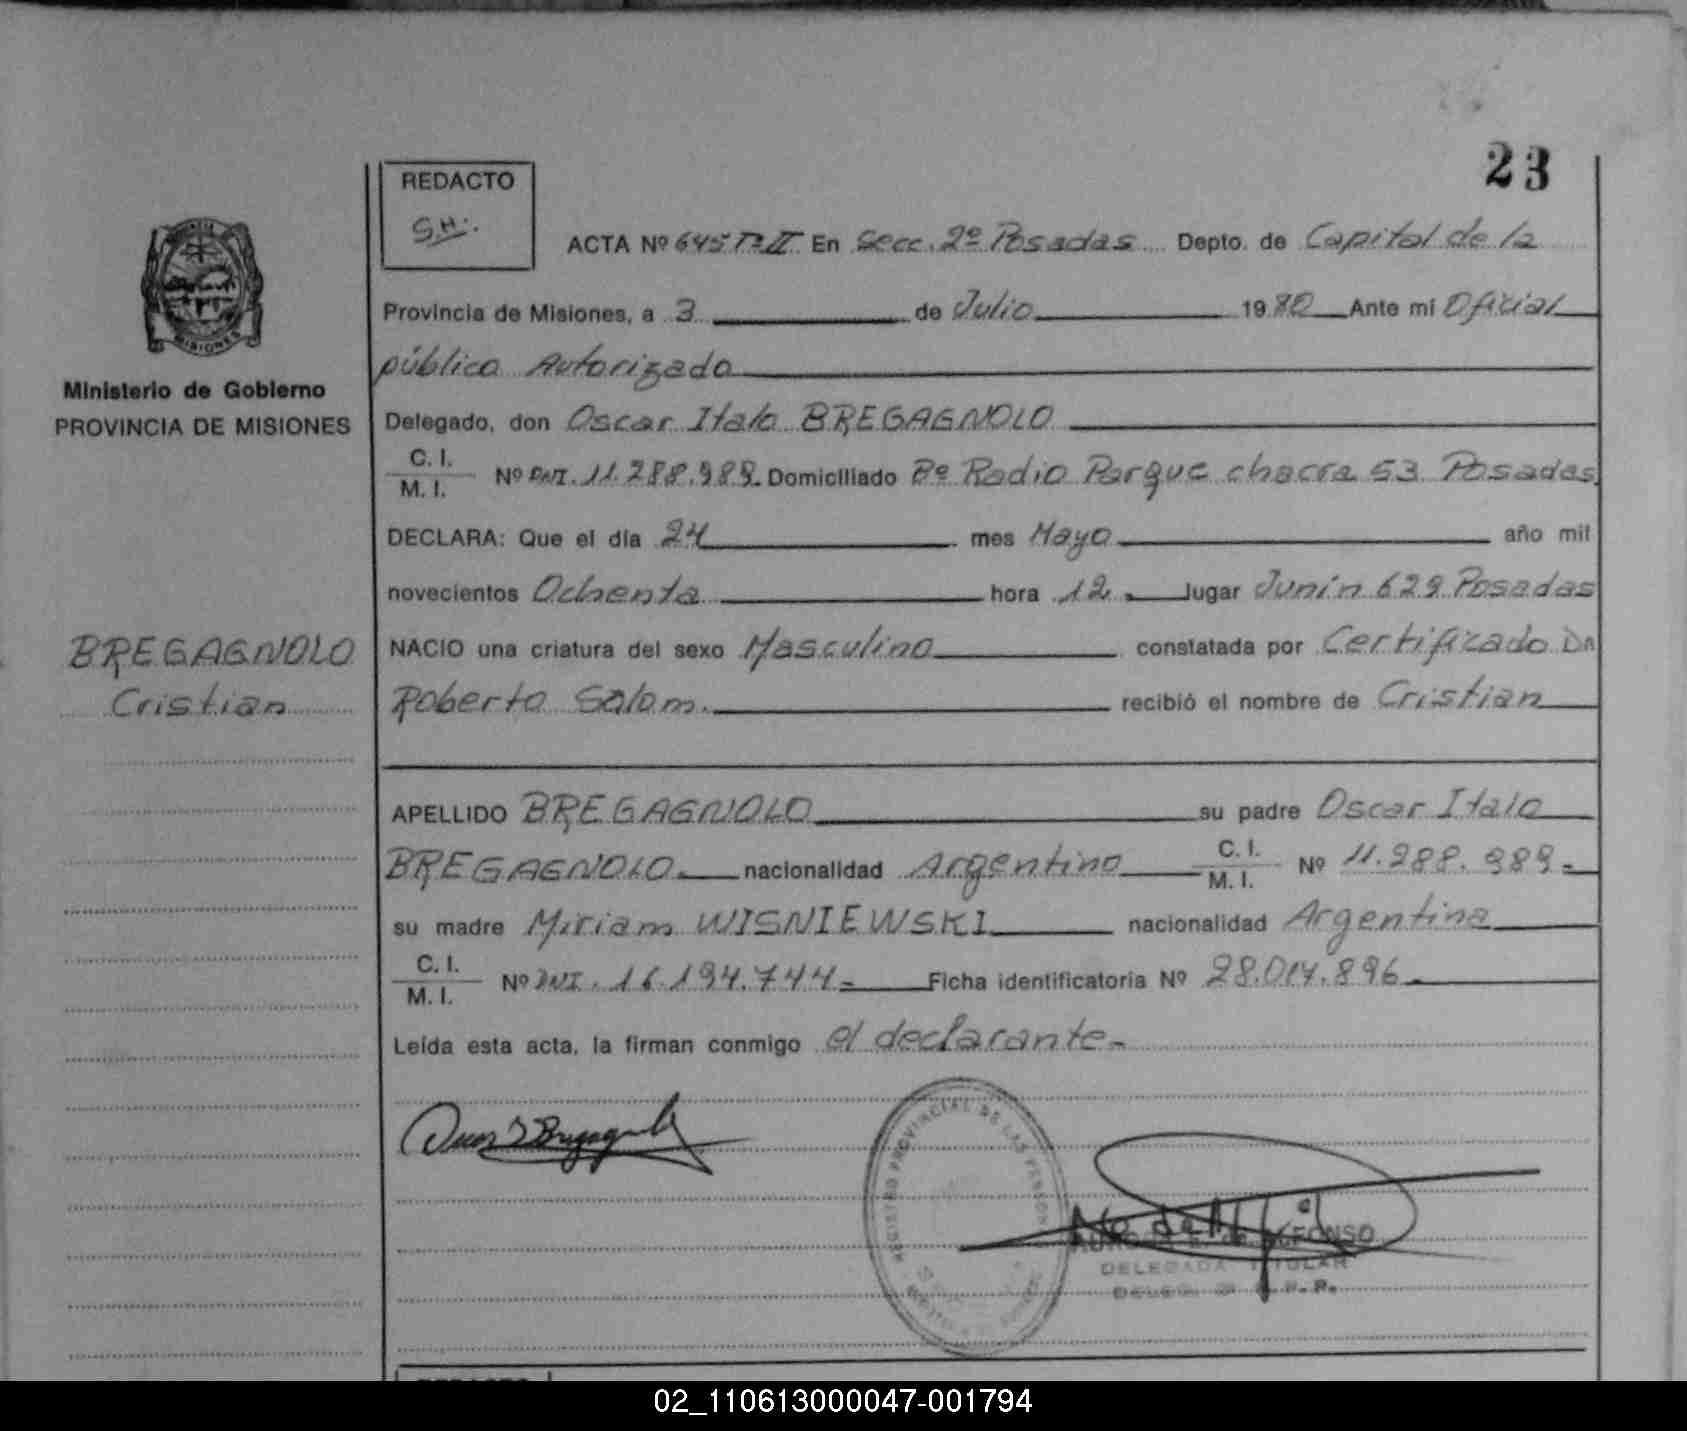 23
REDACTO
S.H.
ACTA Nº 645 Tº II En Secc. 2º Posadas Depto. de Capital de la
Provincia de Misiones, a 3 de Julio 1980 Ante mi Oficial
público Autorizado
Delegado, don Oscar Italo BREGAGNOLO
C. I.
M. I. Nº DNI. 11.288.989. Domiciliado Bº Radio Parque chacra 53 Posadas
DECLARA: Que el día 24 mes Mayo año mil
novecientos Ochenta hora 12 lugar Junín 629 Posadas
NACIO una criatura del sexo Masculino constatada por Certificado Dn
Roberto Salom. recibió el nombre de Cristian
APELLIDO BREGAGNOLO su padre Oscar Italo
BREGAGNOLO nacionalidad Argentino C. I. M. I. Nº 11.288.989.-
su madre Miriam WISNIEWSKI nacionalidad Argentina
C. I.
M. I. Nº DNI. 16.194.744.- Ficha identificatoria Nº 28.014.896.
Leída esta acta, la firman conmigo el declarante.-
MISIONES
Ministerio de Gobierno
PROVINCIA DE MISIONES
BREGAGNOLO
Cristian
REGISTRO PROVINCIAL DE LAS PERSONAS
DE ALFONSO
DELEGADA TITULAR
02_110613000047-001794